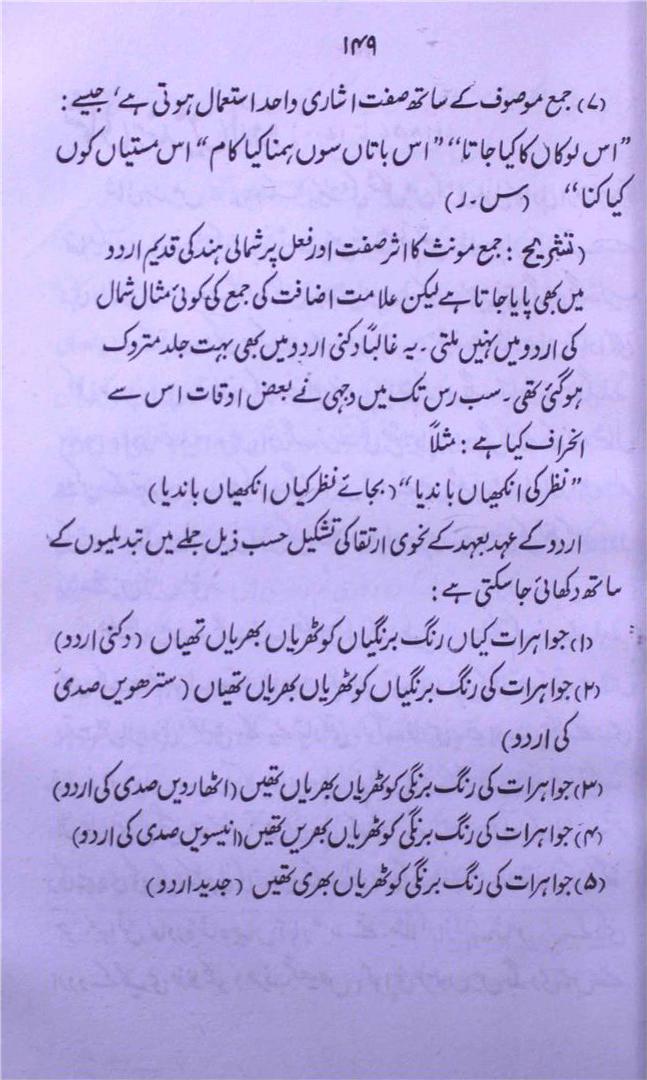 ۱۴۹
(۷) جمع موصوف کے ساتھ صفت اشاری واحد استعمال ہوتی ہے، جیسے :
”اس لوکان کا کیا جاتا“ ”اس باتاں سوں ہمنا کیا کام“ اس مستیاں کوں
کیا کنا“ (س۔ر)
(تشریح : جمع مونث کا اثر صفت اور فعل پر شمالی ہند کی قدیم اردو
میں بھی پایا جاتا ہے لیکن علامت اضافت کی جمع کی کوئی مثال شمال
کی اردو میں نہیں ملتی ۔ یہ غالباً دکنی اردو میں بھی بہت جلد متروک
ہو گئی تھی ۔ سب رس تک میں وجہی نے بعض اوقات اس سے
انحراف کیا ہے : مثلاً
”نظر کی انکھیاں باندیا“ (بجائے نظر کیاں انکھیاں باندیا)
اردو کے عہد بعہد کے نحوی ارتقا کی تشکیل حسب ذیل جملے میں تبدیلیوں کے
ساتھ دکھائی جا سکتی ہے :
(۱) جواہرات کیاں رنگ برنگیاں کوٹھریاں بھریاں تھیاں (دکنی اردو)
(۲) جواہرات کی رنگ برنگیاں کوٹھریاں بھریاں تھیاں (سترھویں صدی
کی اردو)
(۳) جواہرات کی رنگ برنگی کوٹھریاں بھریاں تھیں (اٹھارویں صدی کی اردو)
(۴) جواہرات کی رنگ برنگی کوٹھریاں بھریں تھیں (انیسویں صدی کی اردو)
(۵) جواہرات کی رنگ برنگی کوٹھریاں بھری تھیں (جدید اردو)